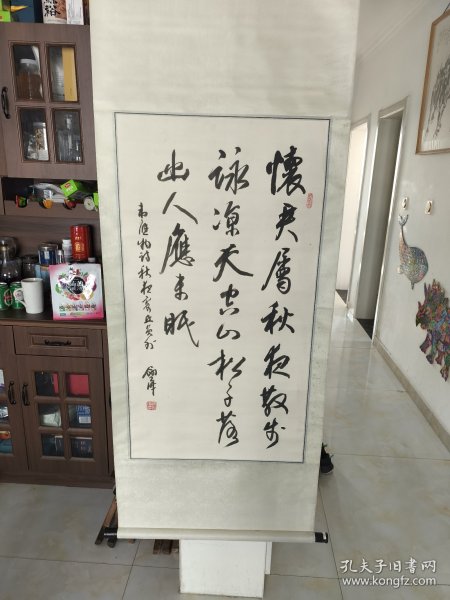 懷君屬秋夜散步
詠凉天空山松子落
幽人應未眠
韋應物詩秋夜寄丘員外
孔夫子旧书网
www.kongfz.com